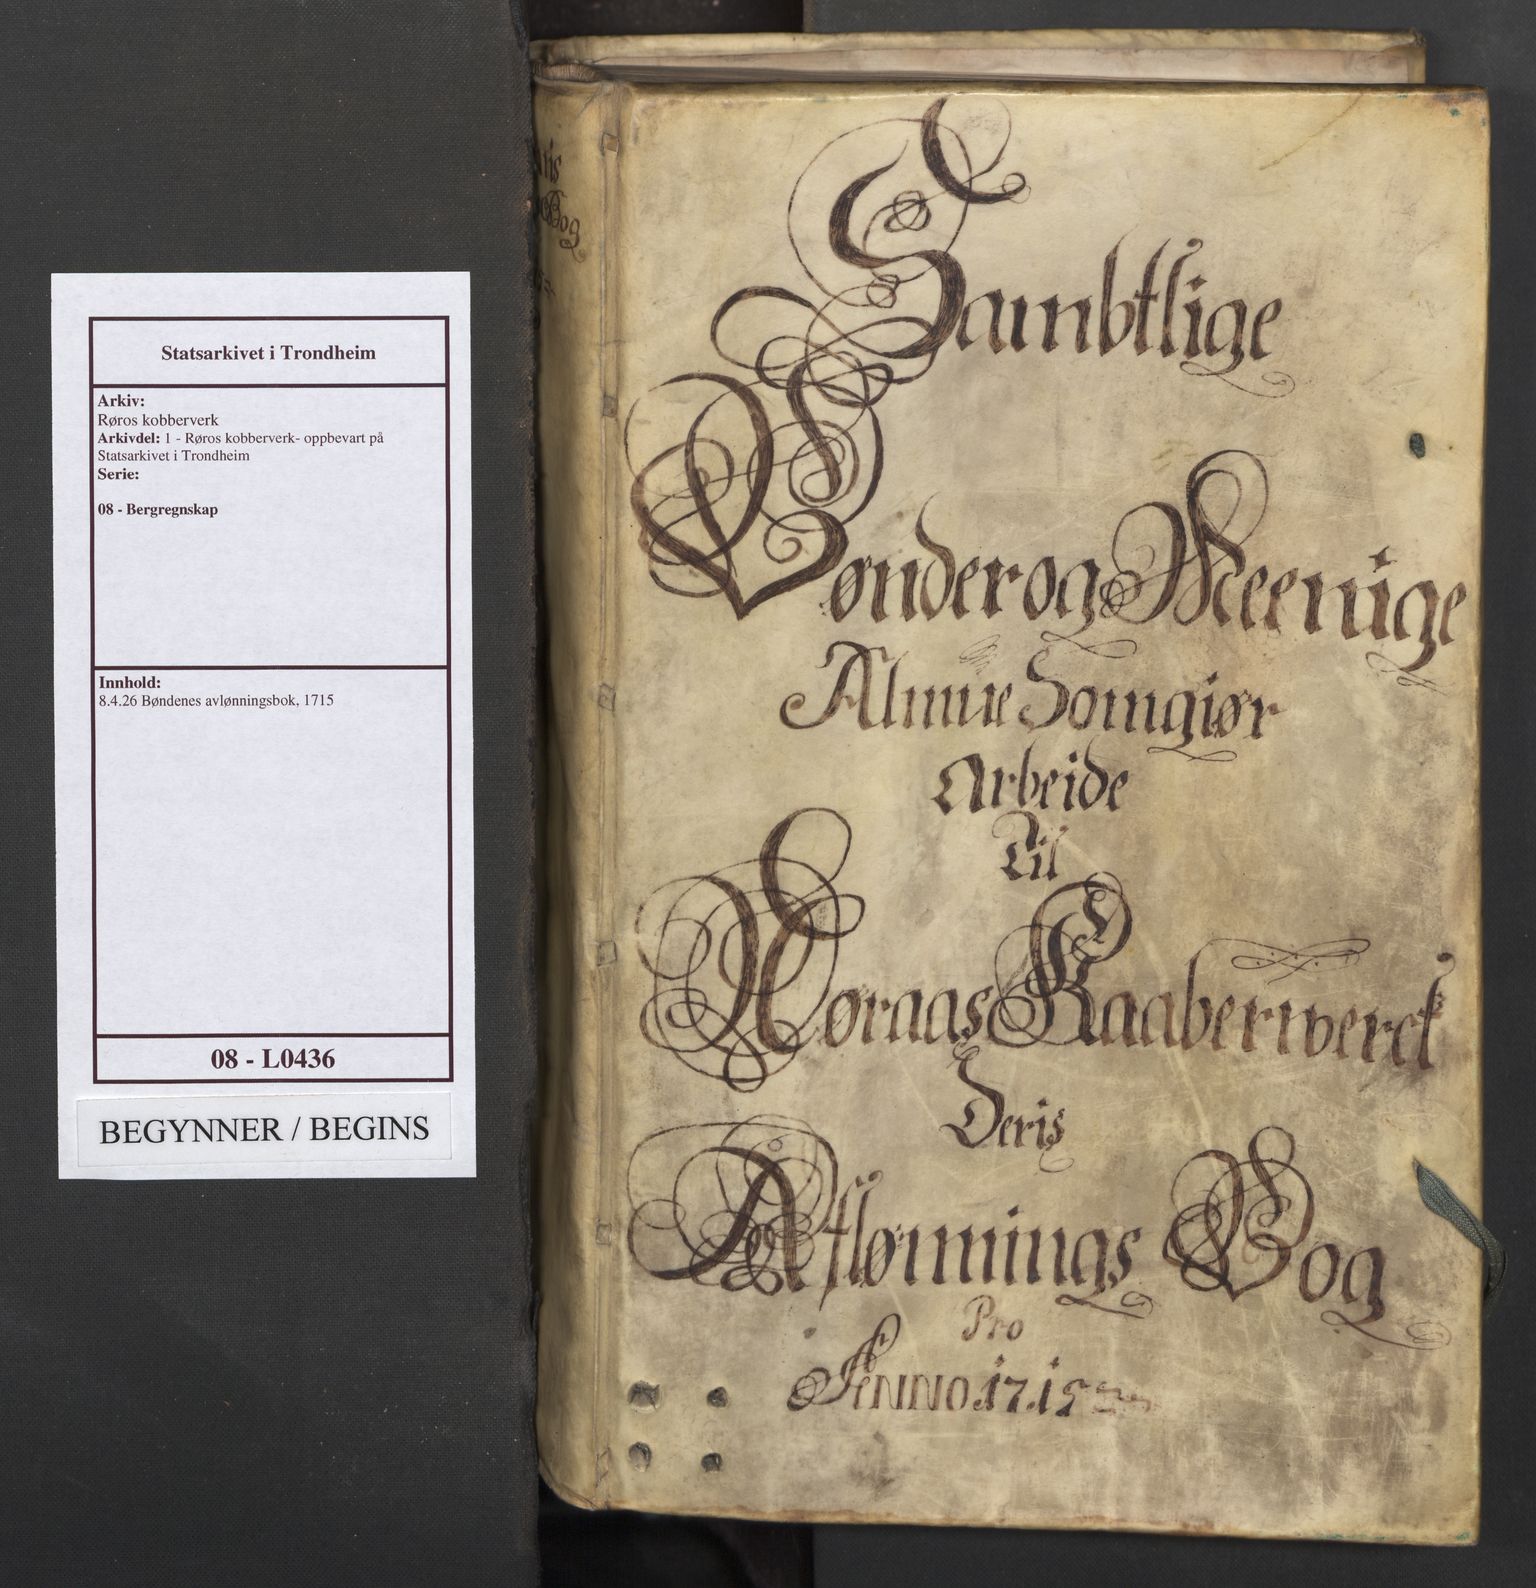 Statsarkivet i Trondheim
Arkiv:
Røros kobberverk
Arkivdel: 1 - Røros kobberverk- oppbevart på
Statsarkivet i Trondheim
Serie:
08 - Bergregnskap
Innhold:
8.4.26 Bøndenes avlønningsbok, 1715
08 - L0436
BEGYNNER / BEGINS
Bog
Sambtlige
Bønder og Meenige
Almue Som giør
Arbeide
Til
Røraas Kaaberwerck
Deris
Aflønnings Bog
Pro
Anno. 17.15